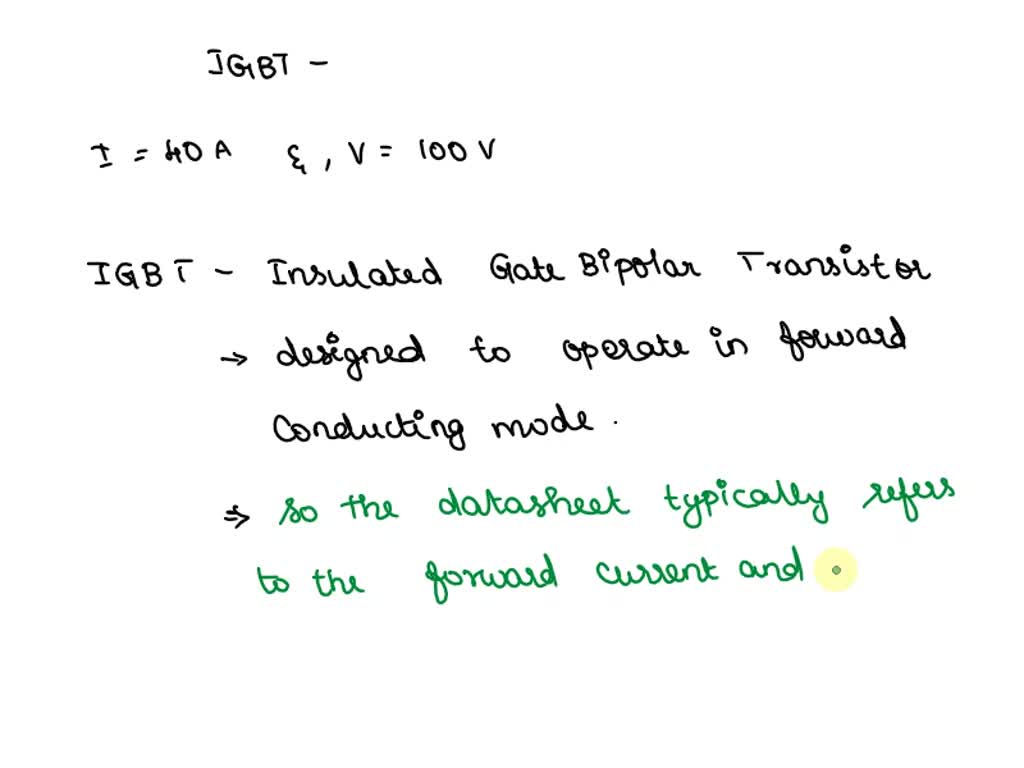 IGBT -
I = 40 A &, V = 100 V
IGBT - Insulated Gate Bipolar Transistor
→ designed to operate in forward
Conducting mode.
⇒ so the datasheet typically refers
to the forward current and